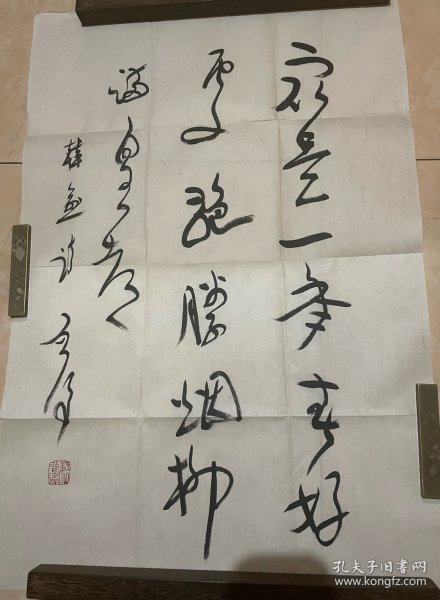 最是一年春好
处绝胜烟柳
满皇都
韩愈诗
孔夫子旧书网
book.kongfz.com